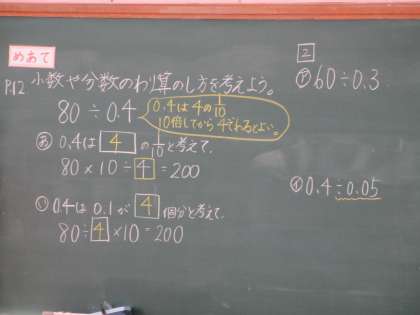 めあて
P12 小数や分数のわり算のし方を考えよう。
80÷0.4
0.4は4の1/10
10倍してから4でわるとよい。
あ 0.4は 4 の1/10と考えて、
80×10÷4=200
い 0.4は0.1が 4 個分と考えて、
80÷4×10=200
2
ア 60÷0.3
イ 0.4÷0.05